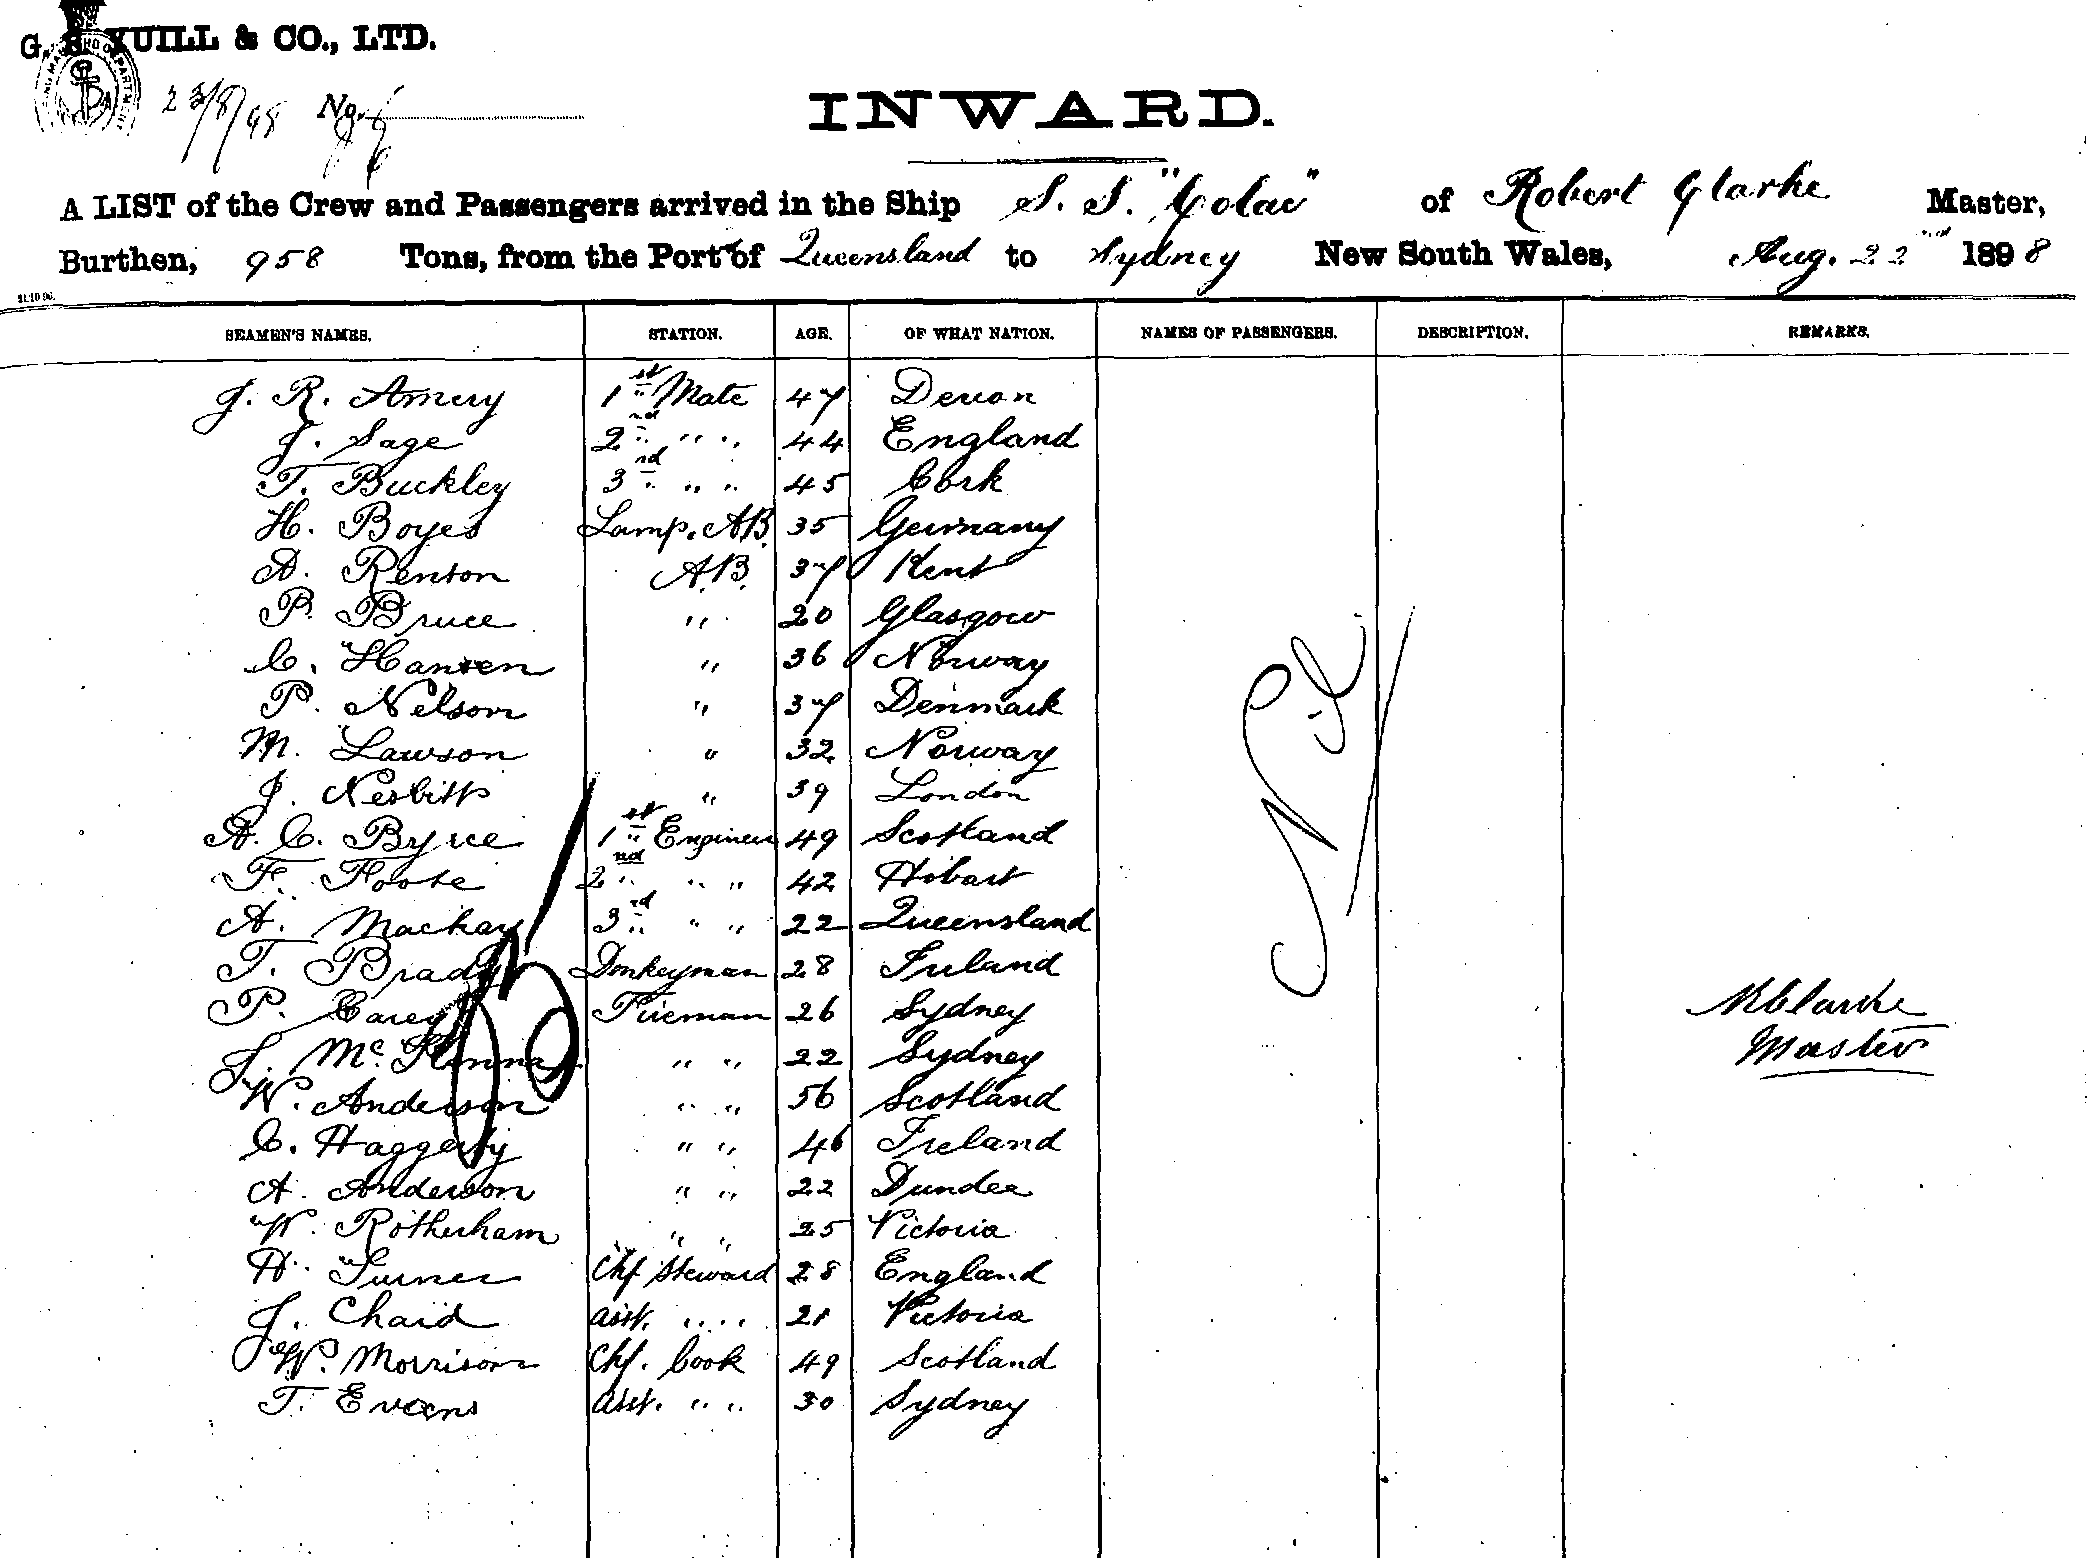 G. S. YUILL & CO., LTD.
23/8/98 No.
INWARD.
A LIST of the Crew and Passengers arrived in the Ship S. S. "Colac" of Robert Clarke Master,
Burthen, 958 Tons, from the Port of Queensland to Sydney New South Wales, Aug. 22nd 1898
21.10.96.
SEAMEN'S NAMES. STATION. AGE. OF WHAT NATION. NAMES OF PASSENGERS. DESCRIPTION. REMARKS.
J. R. Amery 1st Mate 47 Devon
J. Sage 2nd " " 44 England
T. Buckley 3rd " " 45 Cork
H. Boyes Lamp. AB. 35 Germany
A. Renton A.B. 37 Kent
P. Bruce " 20 Glasgow
C. Hansen " 36 Norway
P. Nelson " 37 Denmark
M. Lawson " 32 Norway
J. Nesbitt " 39 London
A. C. Byrce 1st Engineer 49 Scotland
F. Foote 2nd " " 42 Hobart
A. Mackay 3rd " " 22 Queensland
T. Brady Donkeyman 28 Ireland
P. Carey Fireman 26 Sydney
J. McKenna " " 22 Sydney
W. Anderson " " 56 Scotland
C. Haggerty " " 46 Ireland
A. Anderson " " 22 Dundee
W. Rotherham " " 25 Victoria
H. Turner Chf Steward 28 England
J. Chaid asst. " " 21 Victoria
J W. Morrison Chf. Cook 49 Scotland
T. Evans asst. " " 30 Sydney
Nil
R Clarke
Master